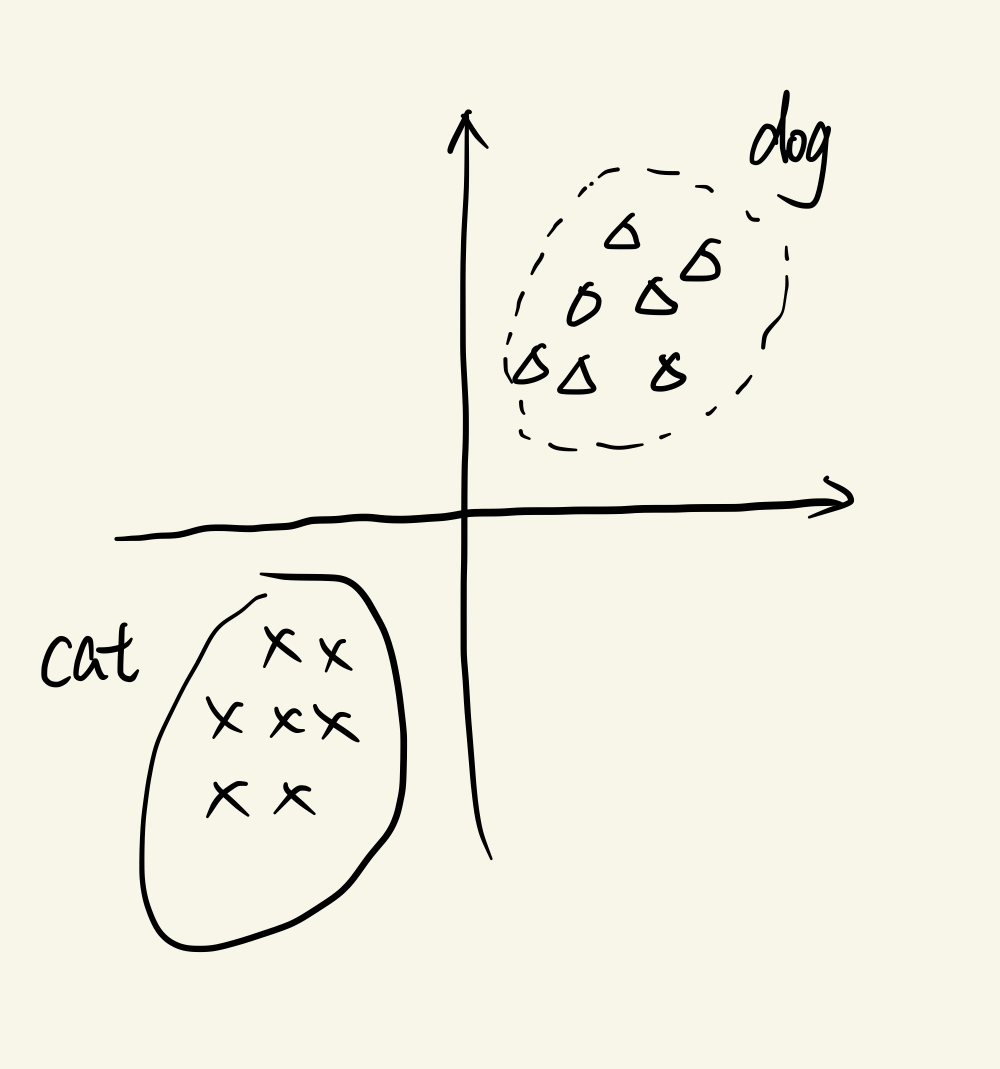 dog
cat